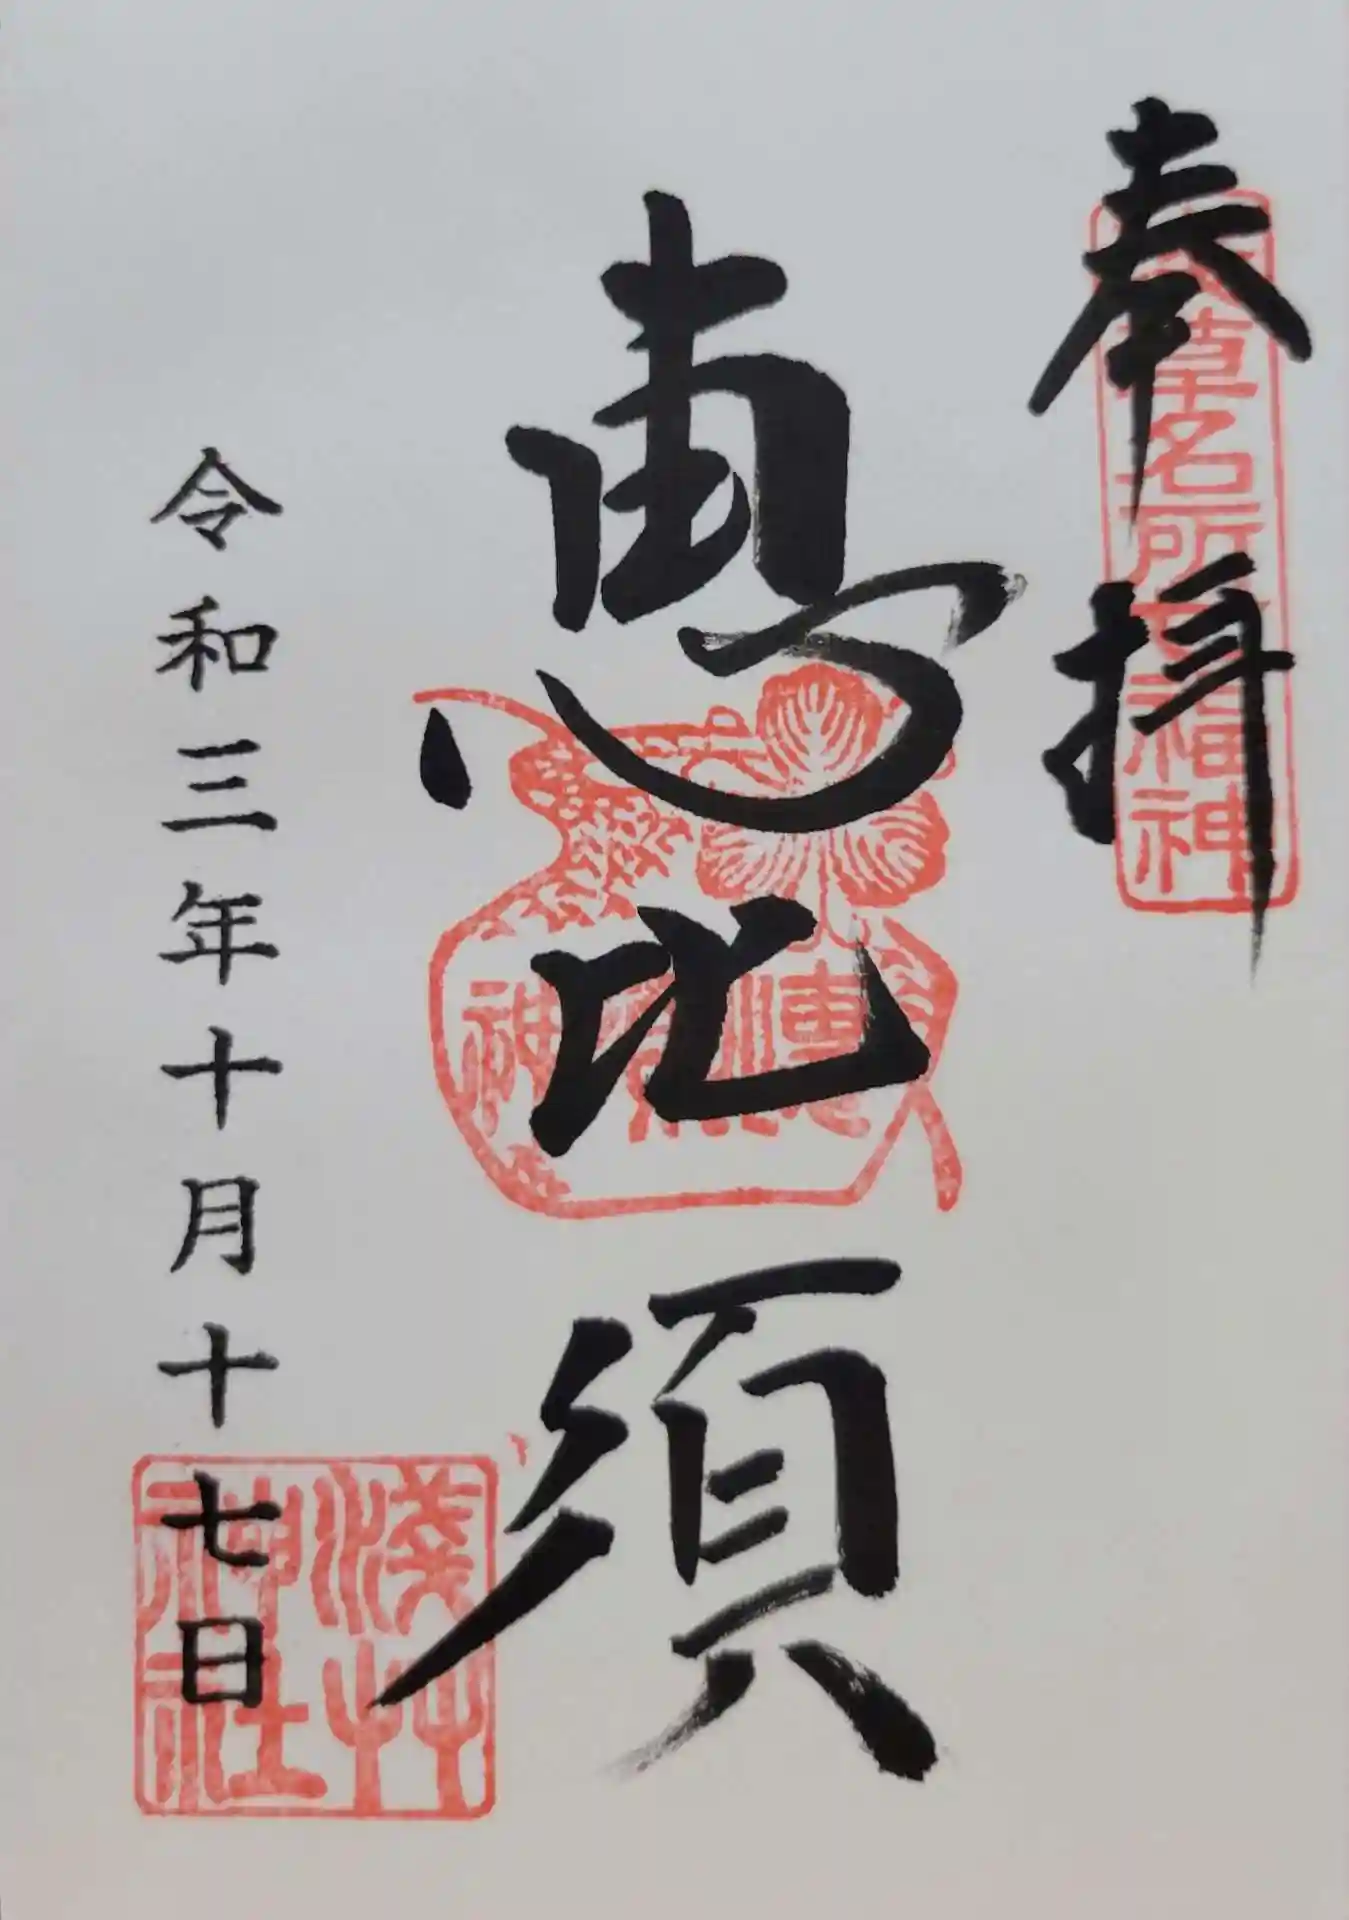 奉拝
浅草名所七福神
恵比須
恵比須神
令和三年十月十七日
浅草神社